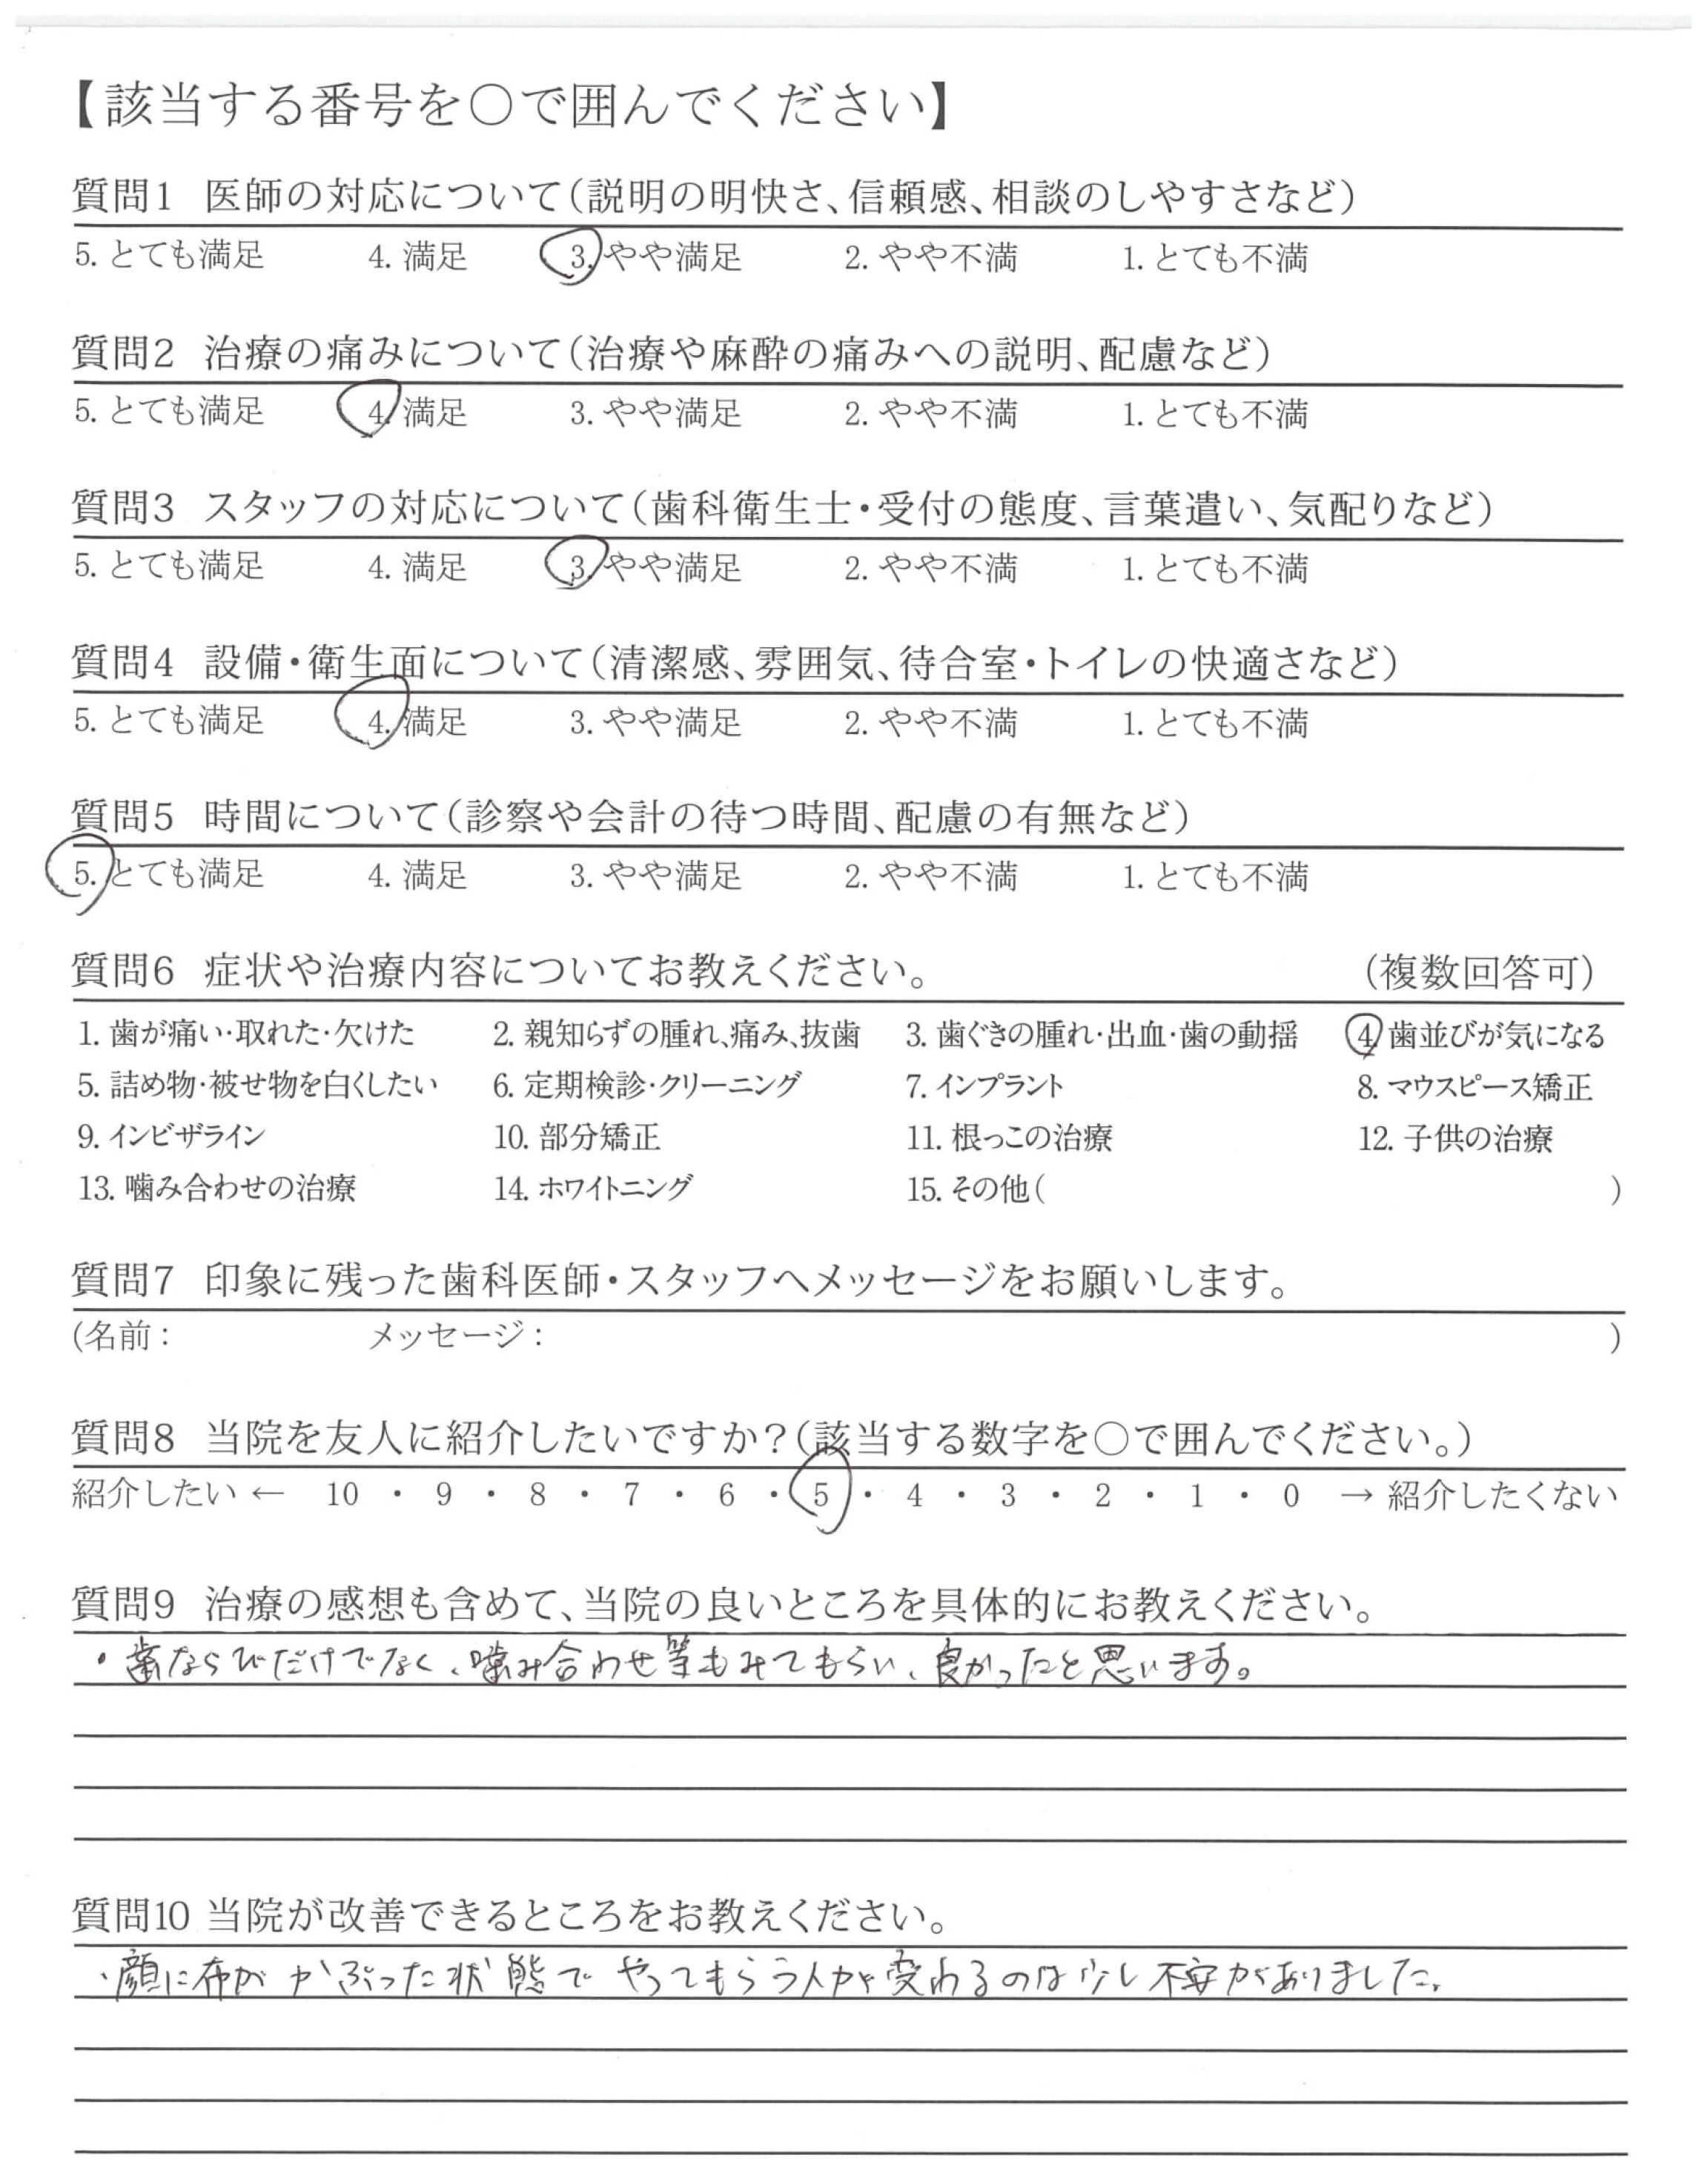 【該当する番号を○で囲んでください】
質問1 医師の対応について(説明の明快さ、信頼感、相談のしやすさなど)
5. とても満足 4. 満足 3. やや満足 2. やや不満 1. とても不満
質問2 治療の痛みについて(治療や麻酔の痛みへの説明、配慮など)
5. とても満足 4. 満足 3. やや満足 2. やや不満 1. とても不満
質問3 スタッフの対応について(歯科衛生士・受付の態度、言葉遣い、気配りなど)
5. とても満足 4. 満足 3. やや満足 2. やや不満 1. とても不満
質問4 設備・衛生面について(清潔感、雰囲気、待合室・トイレの快適さなど)
5. とても満足 4. 満足 3. やや満足 2. やや不満 1. とても不満
質問5 時間について(診察や会計の待つ時間、配慮の有無など)
5. とても満足 4. 満足 3. やや満足 2. やや不満 1. とても不満
質問6 症状や治療内容についてお教えください。 (複数回答可)
1. 歯が痛い・取れた・欠けた 2. 親知らずの腫れ、痛み、抜歯 3. 歯ぐきの腫れ・出血・歯の動揺 4. 歯並びが気になる
5. 詰め物・被せ物を白くしたい 6. 定期検診・クリーニング 7. インプラント 8. マウスピース矯正
9. インビザライン 10. 部分矯正 11. 根っこの治療 12. 子供の治療
13. 噛み合わせの治療 14. ホワイトニング 15. その他( )
質問7 印象に残った歯科医師・スタッフへメッセージをお願いします。
(名前: メッセージ: )
質問8 当院を友人に紹介したいですか?(該当する数字を○で囲んでください。)
紹介したい ← 10 ・ 9 ・ 8 ・ 7 ・ 6 ・ 5 ・ 4 ・ 3 ・ 2 ・ 1 ・ 0 → 紹介したくない
質問9 治療の感想も含めて、当院の良いところを具体的にお教えください。
・歯ならびだけでなく、噛み合わせ等もみてもらい、良かったと思います。
質問10 当院が改善できるところをお教えください。
・顔に布がかぶった状態でやってもらう人が変わるのは少し不安がありました。